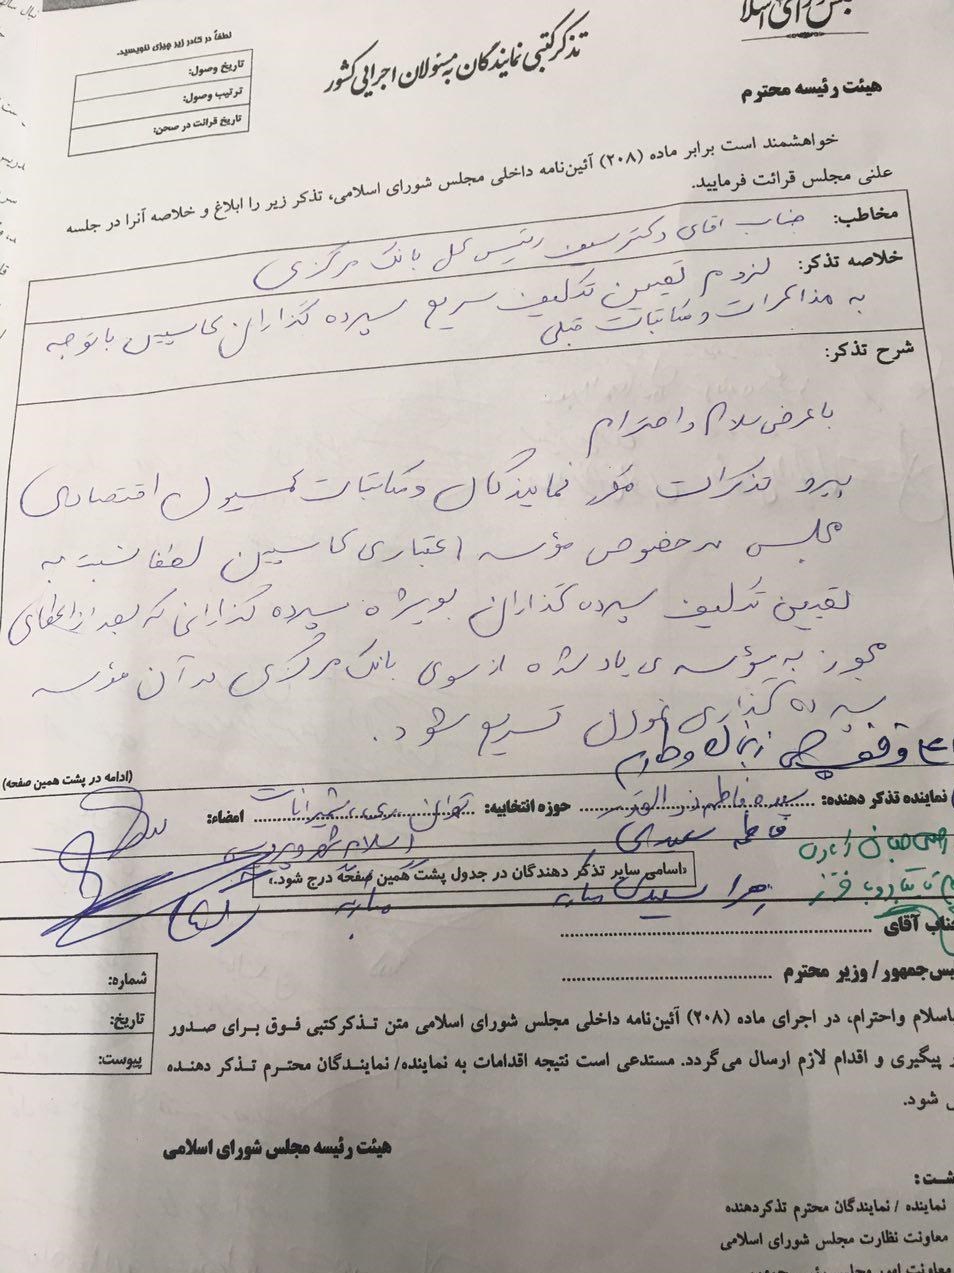 تذکر کتبی نمایندگان به مسئولان اجرایی کشور
لطفاً در کادر زیر چیزی ننویسید.
تاریخ وصول:
ترتیب وصول:
تاریخ قرائت در صحن:
هیئت رئیسه محترم
خواهشمند است برابر ماده (۲۰۸) آئین‌نامه داخلی مجلس شورای اسلامی، تذکر زیر را ابلاغ و خلاصه آنرا در جلسه
علنی مجلس قرائت فرمایید.
مخاطب: جناب آقای دکتر سیف رئیس کل بانک مرکزی
خلاصه تذکر: لزوم تعیین تکلیف سریع سپرده گذاران کاسپین با توجه
به مذاکرات و مکاتبات قبلی
شرح تذکر:
با عرض سلام و احترام
پیرو تذکرات مکرر نمایندگان و مکاتبات کمسیون اقتصادی
مجلس در خصوص مؤسسه اعتباری کاسپین لطفا نسبت به
تعیین تکلیف سپرده گذاران بویژه سپرده گذارانی که بعد از اعطای
مجوز به مؤسسه ی یاد شده از سوی بانک مرکزی در آن مؤسسه
سپرده گذاری نمودن تسریع شود.
(ادامه در پشت همین صفحه)
نماینده تذکر دهنده: سیده فاطمه ذوالقدر حوزه انتخابیه: تهران، ری، شمیرانات امضاء:
اسلام شهر و پردیس
فاطمه سعیدی
«اسامی سایر تذکر دهندگان در جدول پشت همین صفحه درج شود.»
زهرا سعیدی مبارکه
مبارکه
جناب آقای
شماره:
تاریخ:
پیوست:
رئیس‌جمهور / وزیر محترم
باسلام واحترام، در اجرای ماده (۲۰۸) آئین‌نامه داخلی مجلس شورای اسلامی متن تذکر کتبی فوق برای صدور
پیگیری و اقدام لازم ارسال می‌گردد. مستدعی است نتیجه اقدامات به نماینده/ نمایندگان محترم تذکر دهنده
شود.
هیئت رئیسه مجلس شورای اسلامی
نماینده / نمایندگان محترم تذکردهنده
معاونت نظارت مجلس شورای اسلامی